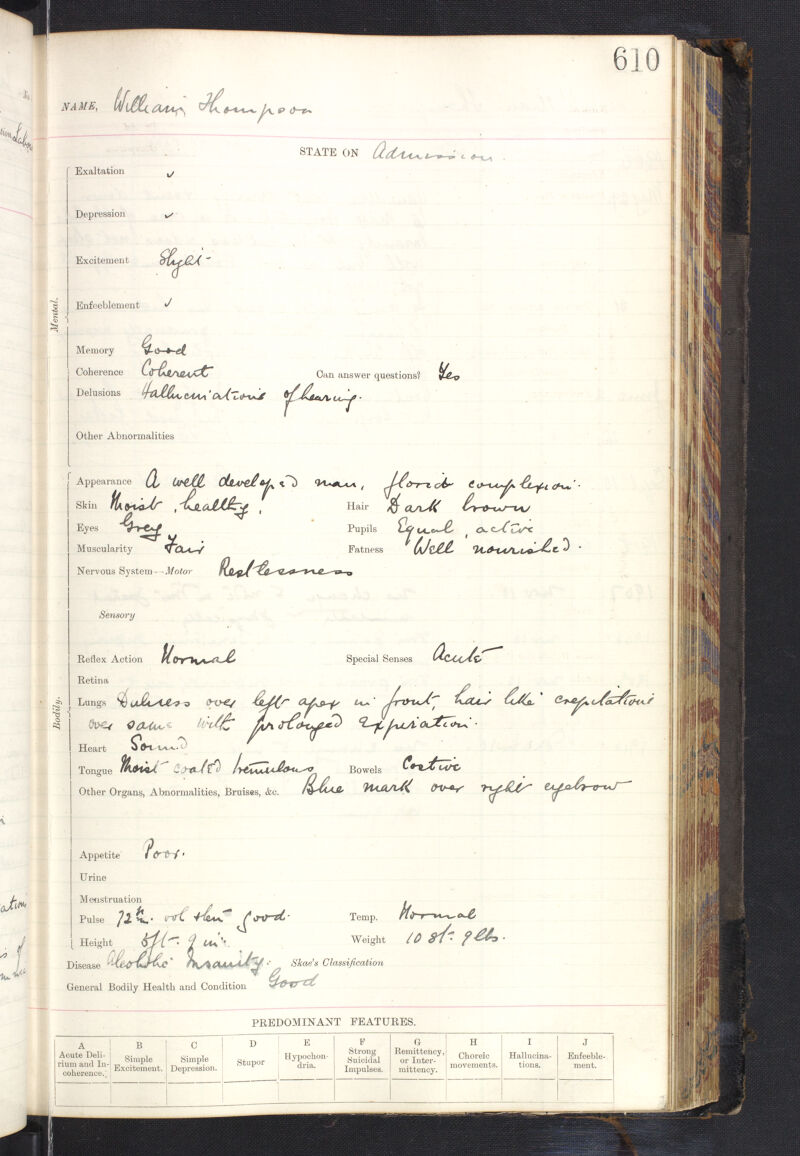 610
NAME, William Thompson
STATE ON Admission.
Mental.
Exaltation ✓
Depression ✓
Excitement Slight
Enfeeblement ✓
Memory Good
Coherence Coherent Can answer questions? Yes
Delusions Hallucinations of hearing.
Other Abnormalities
Bodily.
Appearance A well developed man, florid complexion.
Skin Moist, healthy, Hair Dark brown
Eyes Grey Pupils Equal, active
Muscularity Fair Fatness Well nourished.
Nervous System—Motor Restlessness
Sensory
Reflex Action Normal Special Senses Acute
Retina
Lungs Dulness over left apex in front, hair like crepitations
over same with prolonged expiration.
Heart Sound
Tongue Moist coated tremulous Bowels Costive
Other Organs, Abnormalities, Bruises, &c. Blue mark over right eyebrow
Appetite Poor.
Urine
Menstruation
Pulse 72 good. Temp. Normal
Height 5ft. 9 in. Weight 10 st. 9 lbs.
Disease Alcoholic Insanity. Skae's Classification
General Bodily Health and Condition Good
PREDOMINANT FEATURES.
A B C D E F G H I J
Acute Deli-rium and In-coherence. Simple Excitement. Simple Depression. Stupor Hypochon-dria. Strong Suicidal Impulses. Remittency, or Inter-mittency. Choreic movements. Hallucina-tions. Enfeeble-ment.